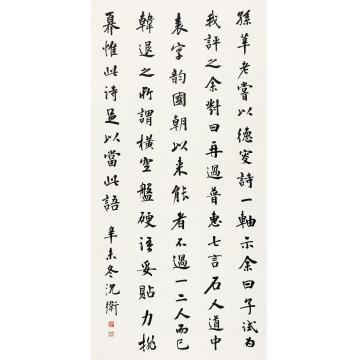 孫莘老嘗以德叟詩一軸示余曰子試為
我評之余對曰再過普惠七言石人道中
袁字韵國朝以来能者不過一二人而已
韓退之所謂横空盤硬语妥貼力排
奡惟此诗足以當此語
辛未冬沈衛